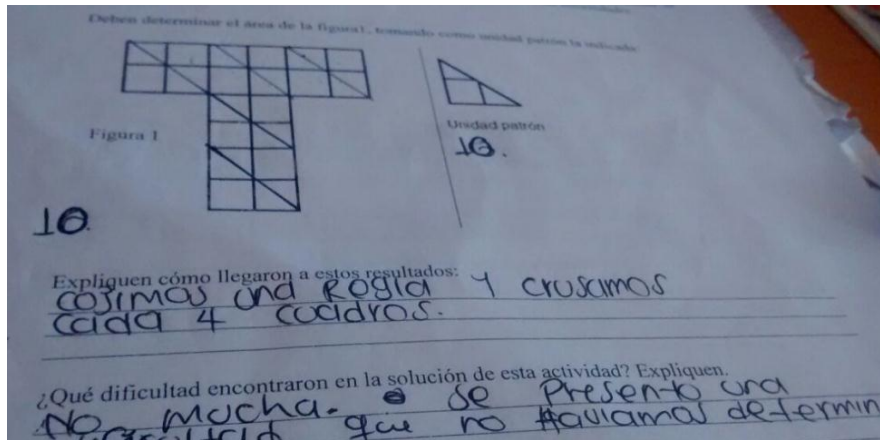 Deben determinar el área de la figura1, tomando como unidad patrón la indicada
Unidad patrón
10.
Figura 1
10.
Expliquen cómo llegaron a estos resultados:
cojimos una Regla y crusamos
cada 4 cuadros.
¿Qué dificultad encontraron en la solución de esta actividad? Expliquen.
No mucha. se Presento una
que no Haviamos determin